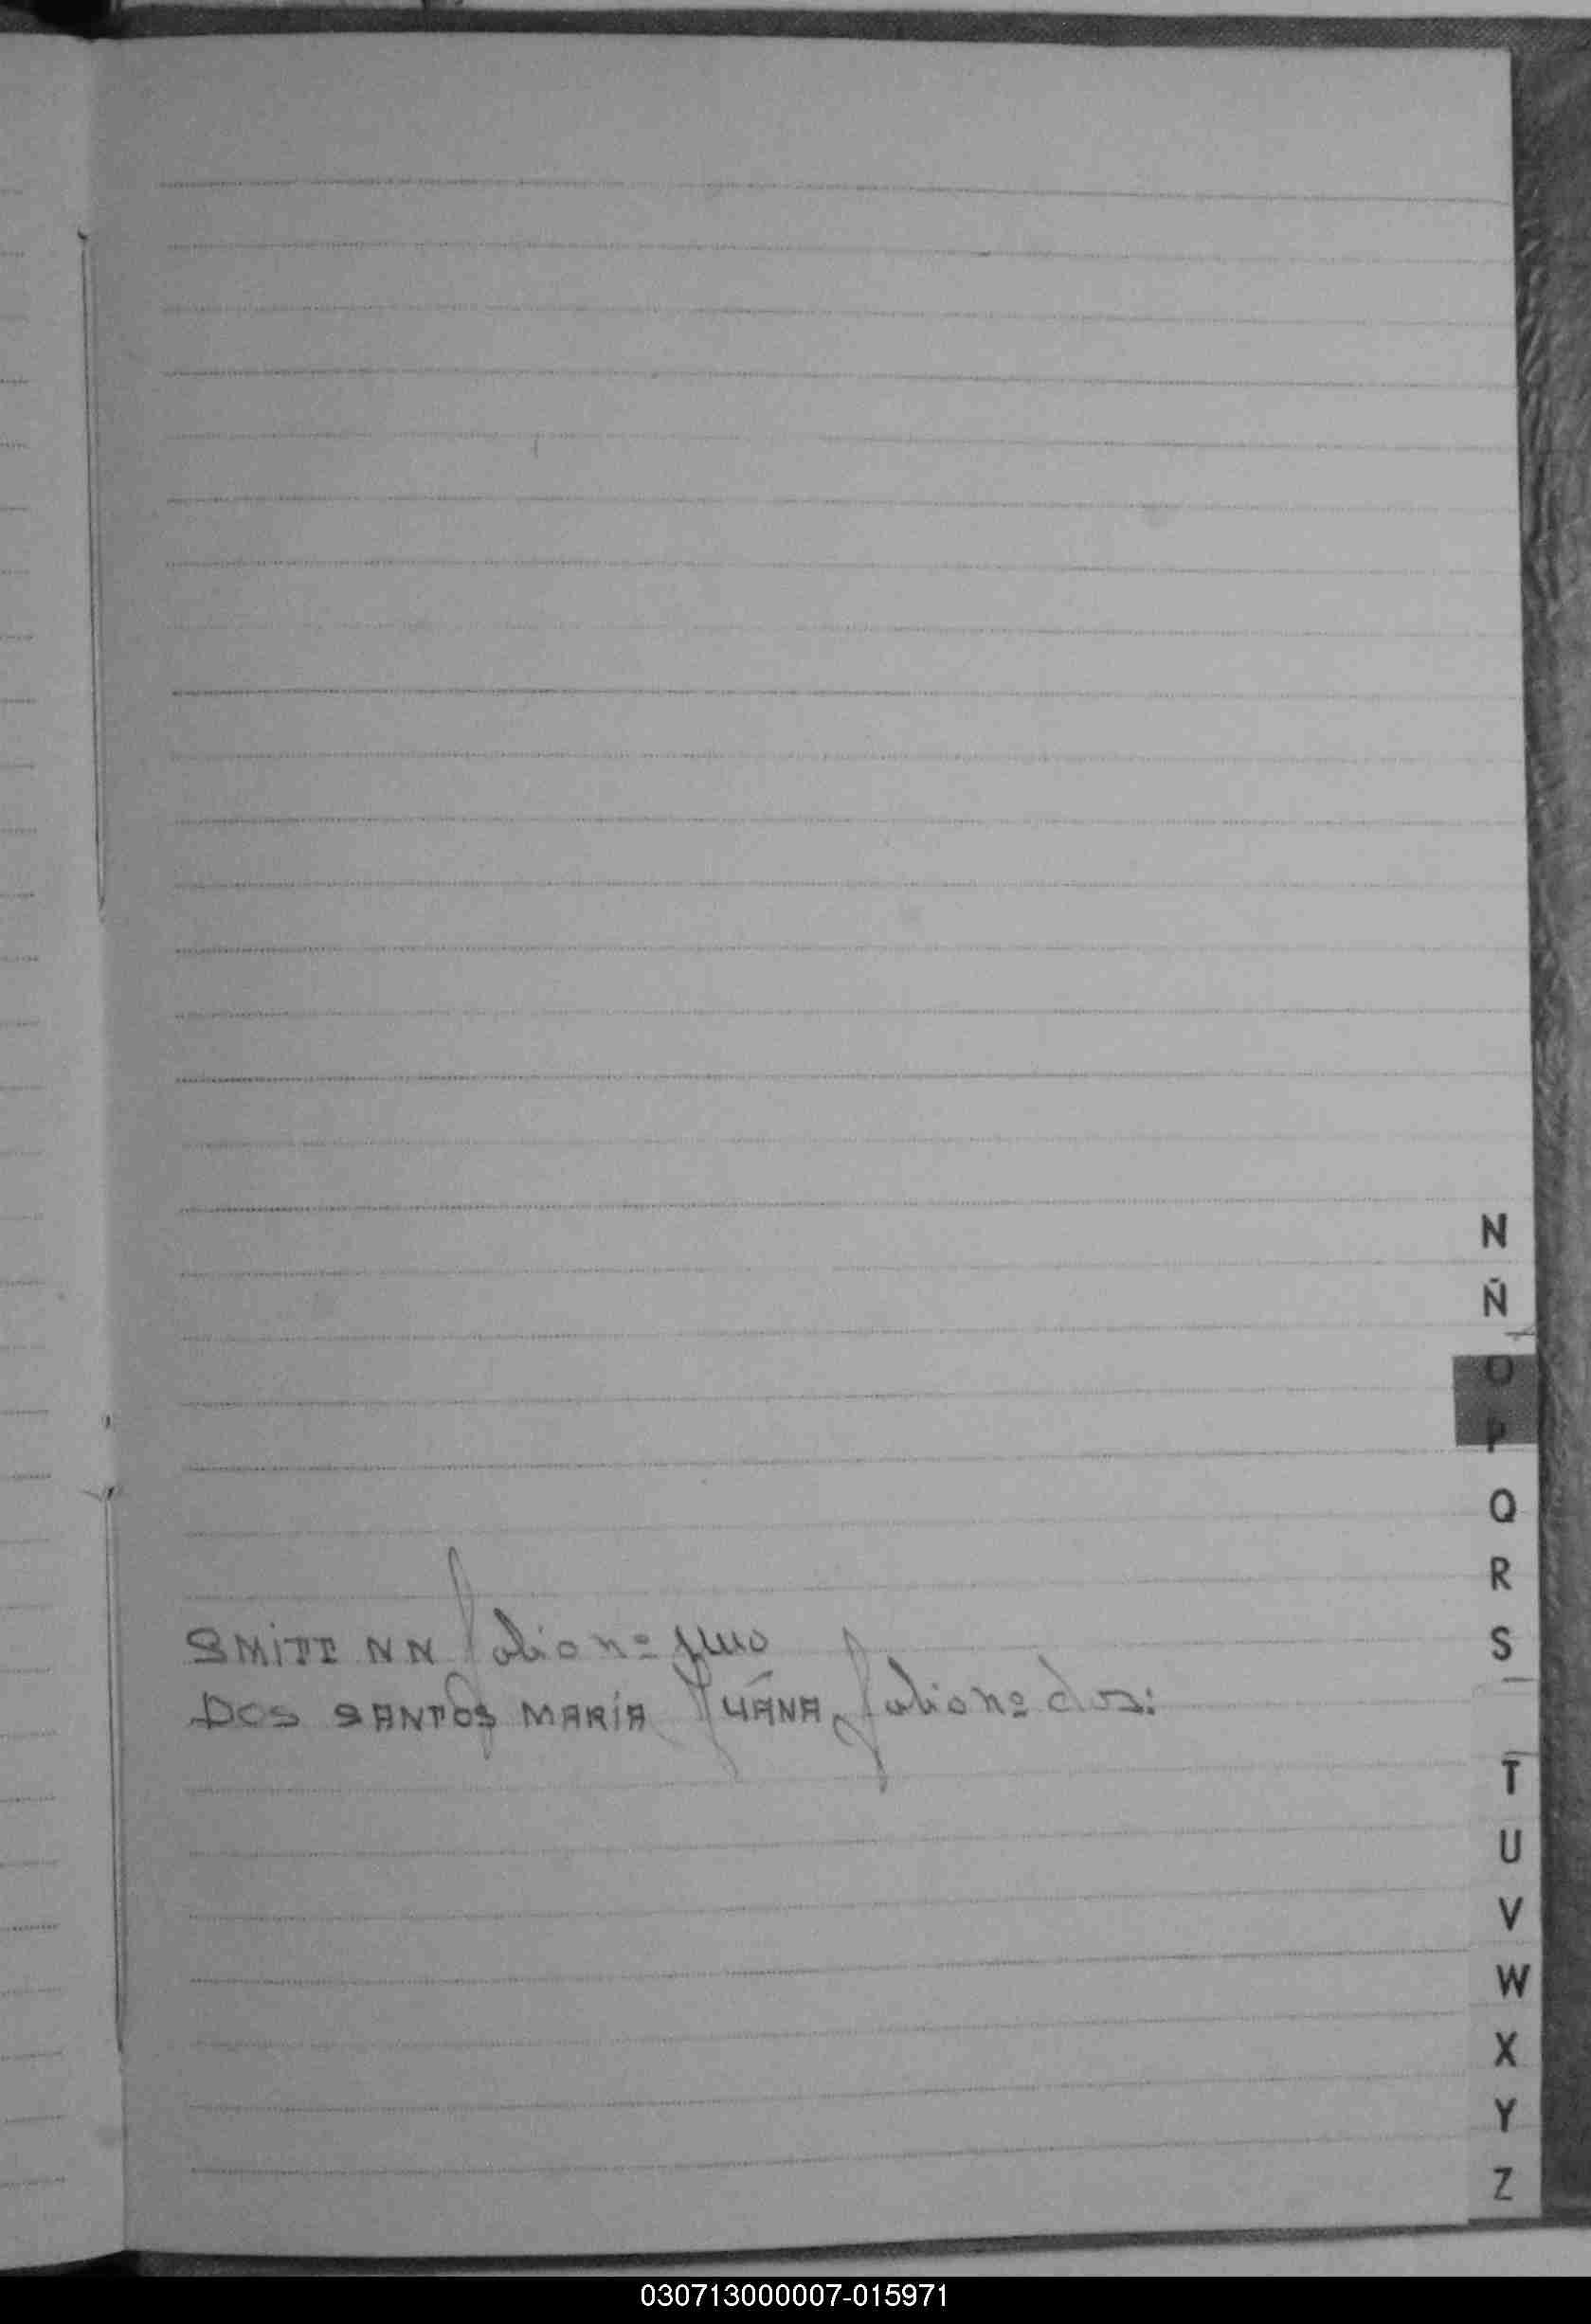 N
Ñ
O
P
Q
R
S
SMITT NN folio nº uno
DOS SANTOS MARÍA JUANA folio nº dos:
T
U
V
W
X
Y
Z
030713000007-015971